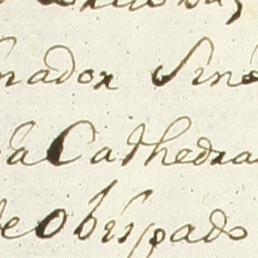 nador Sine
la Cathedra
de Obispado